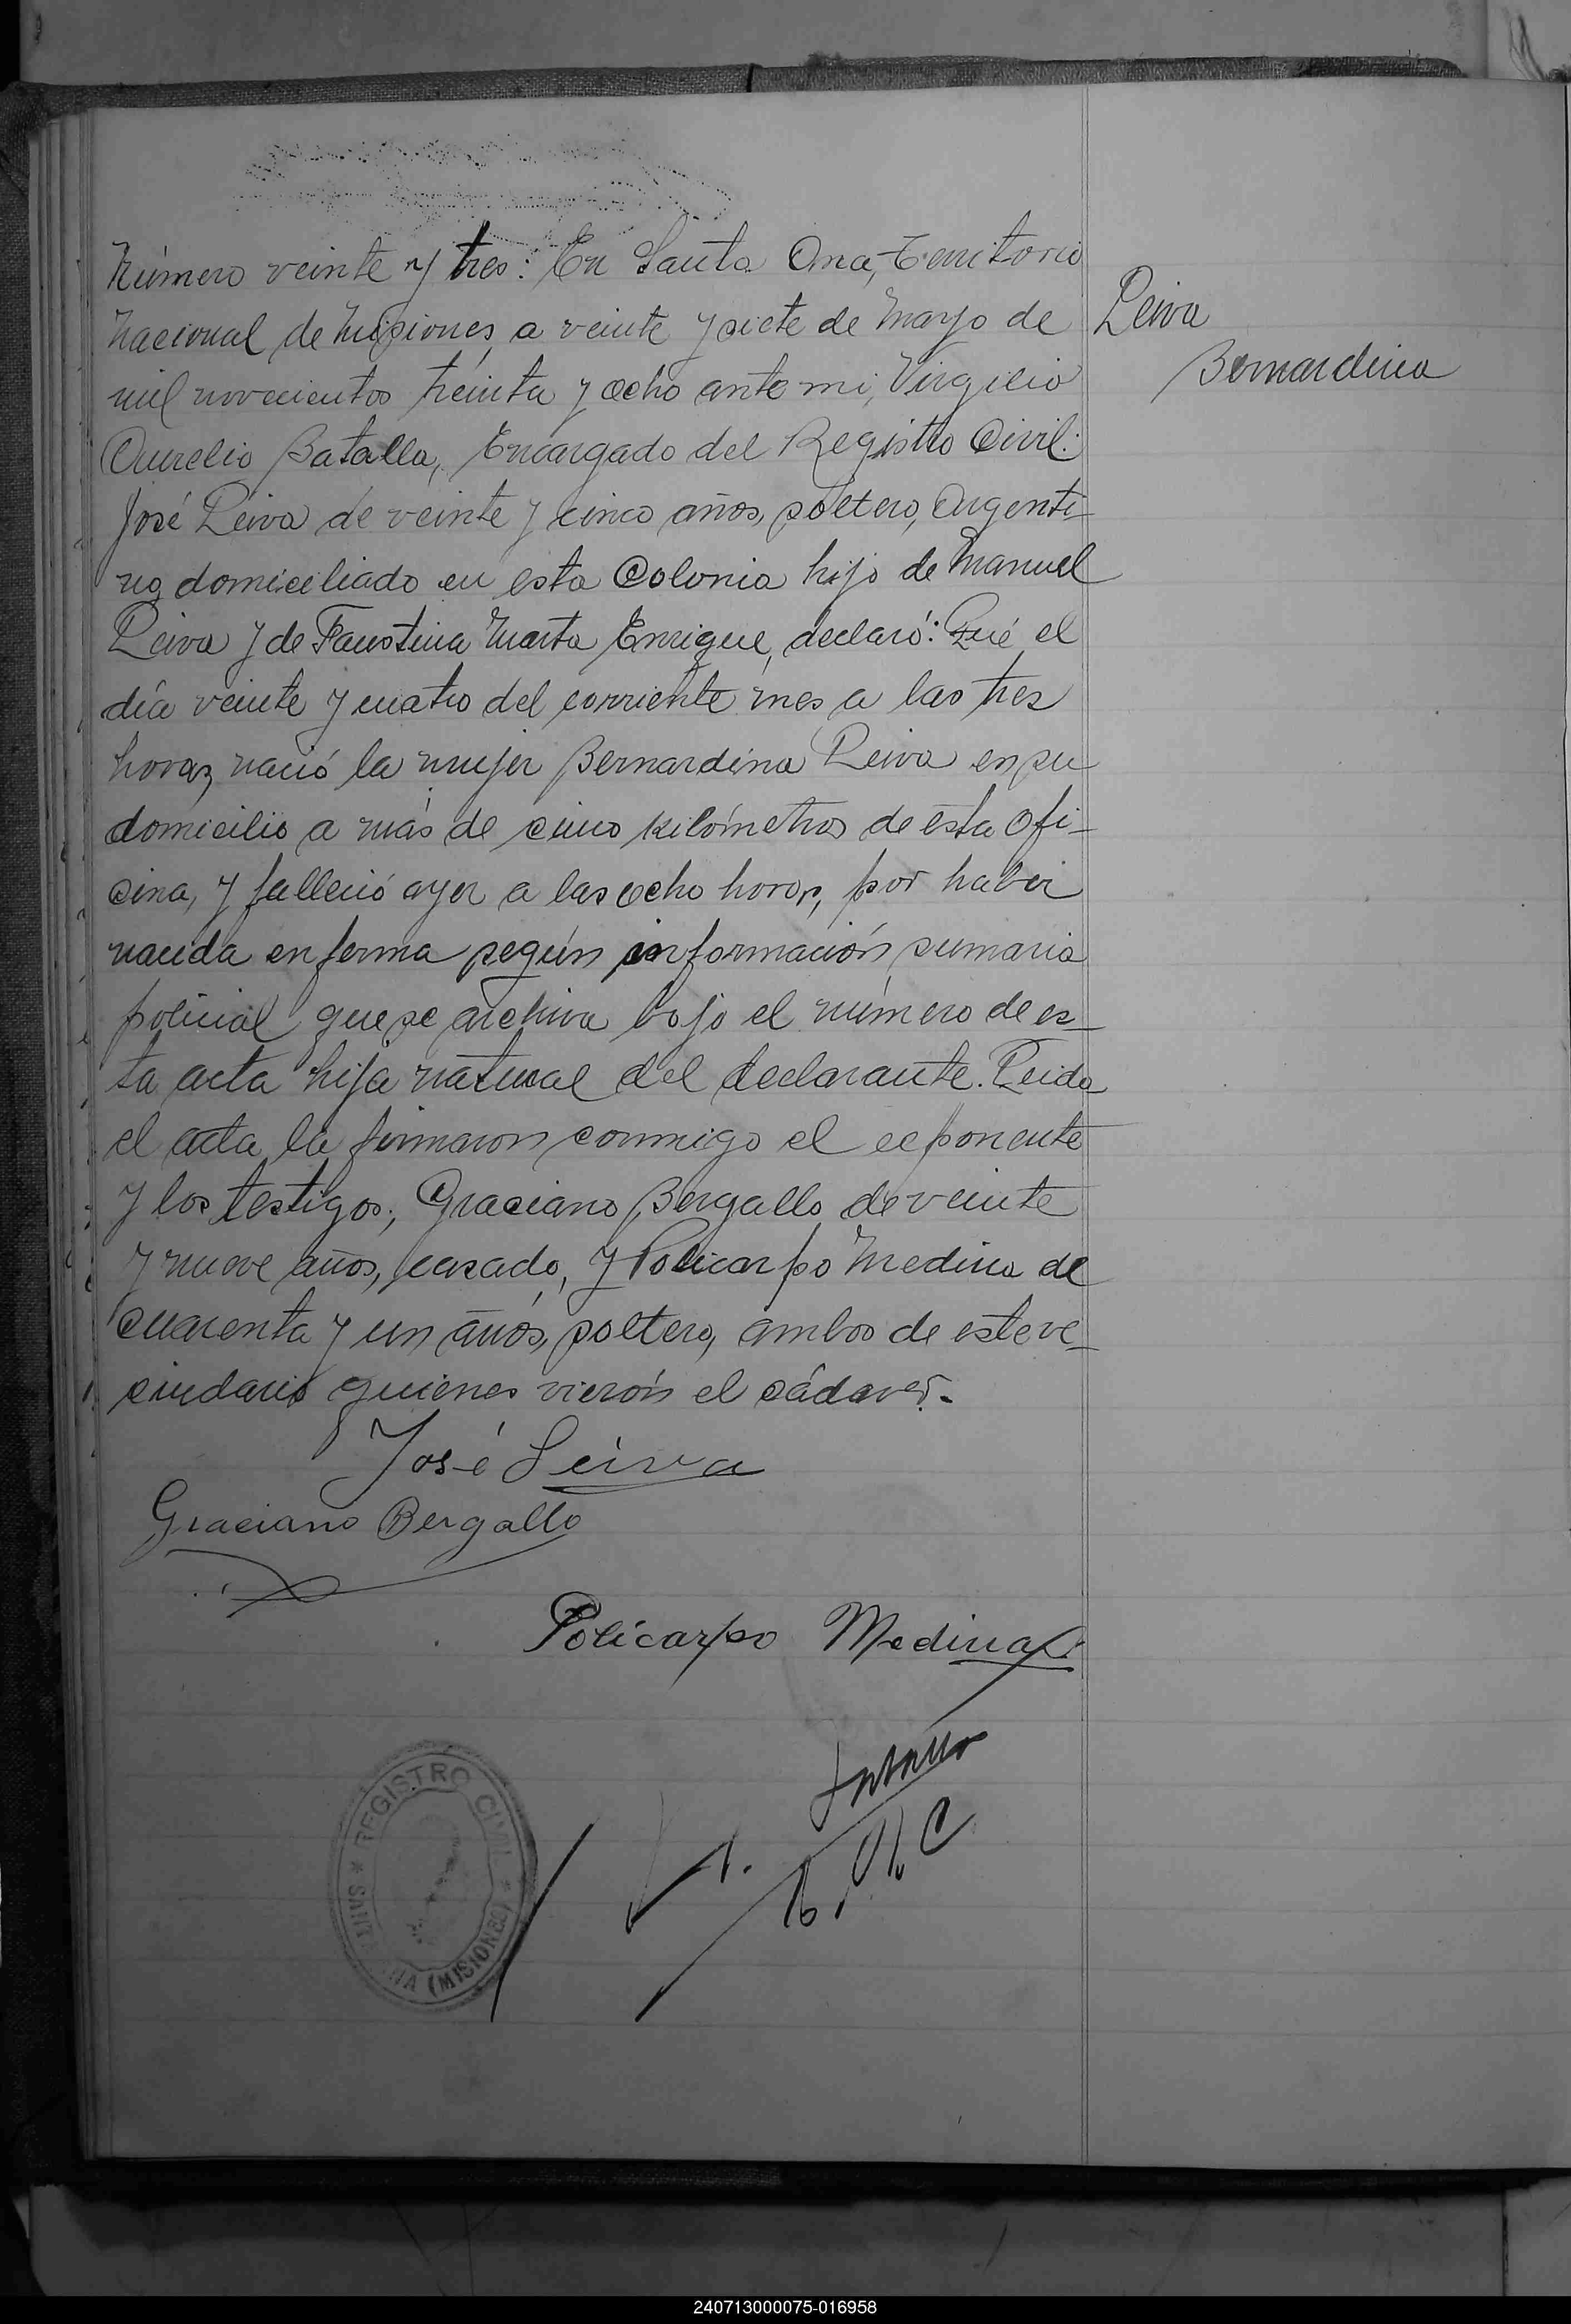 Número veinte y tres: En Santa Ana, Territorio
Nacional de Misiones, a veinte y siete de Mayo de
mil novecientos treinta y ocho ante mi, Virgilio
Aurelio Batalla, Encargado del Registro Civil:
José Leiva de veinte y cinco años, soltero, Argenti-
no, domiciliado en esta Colonia hijo de Manuel
Leiva y de Faustina Marta Enrique, declaró: Qué el
día veinte y cuatro del corriente mes a las tres
horas, nació la mujer Bernardina Leiva en su
domicilio a más de cinco kilómetros de ésta Ofi-
cina, y falleció ayer a las ocho horas, por haber
nacida enferma según información sumaria
policial que se archiva bajo el número de es-
ta acta hija natural del declarante. Leida
el acta la firmaron conmigo el exponente
y los testigos; Graciano Bergallo de veinte
y nueve años, casado, y Policarpo Medina de
cuarenta y un años, soltero, ambos de este ve-
cindario quienes vierón el cádaver.-
Leiva
Bernardina
José Leiva
Graciano Bergallo
Policarpo Medina
REGISTRO CIVIL
* SANTA ANA (MISIONES) *
240713000075-016958